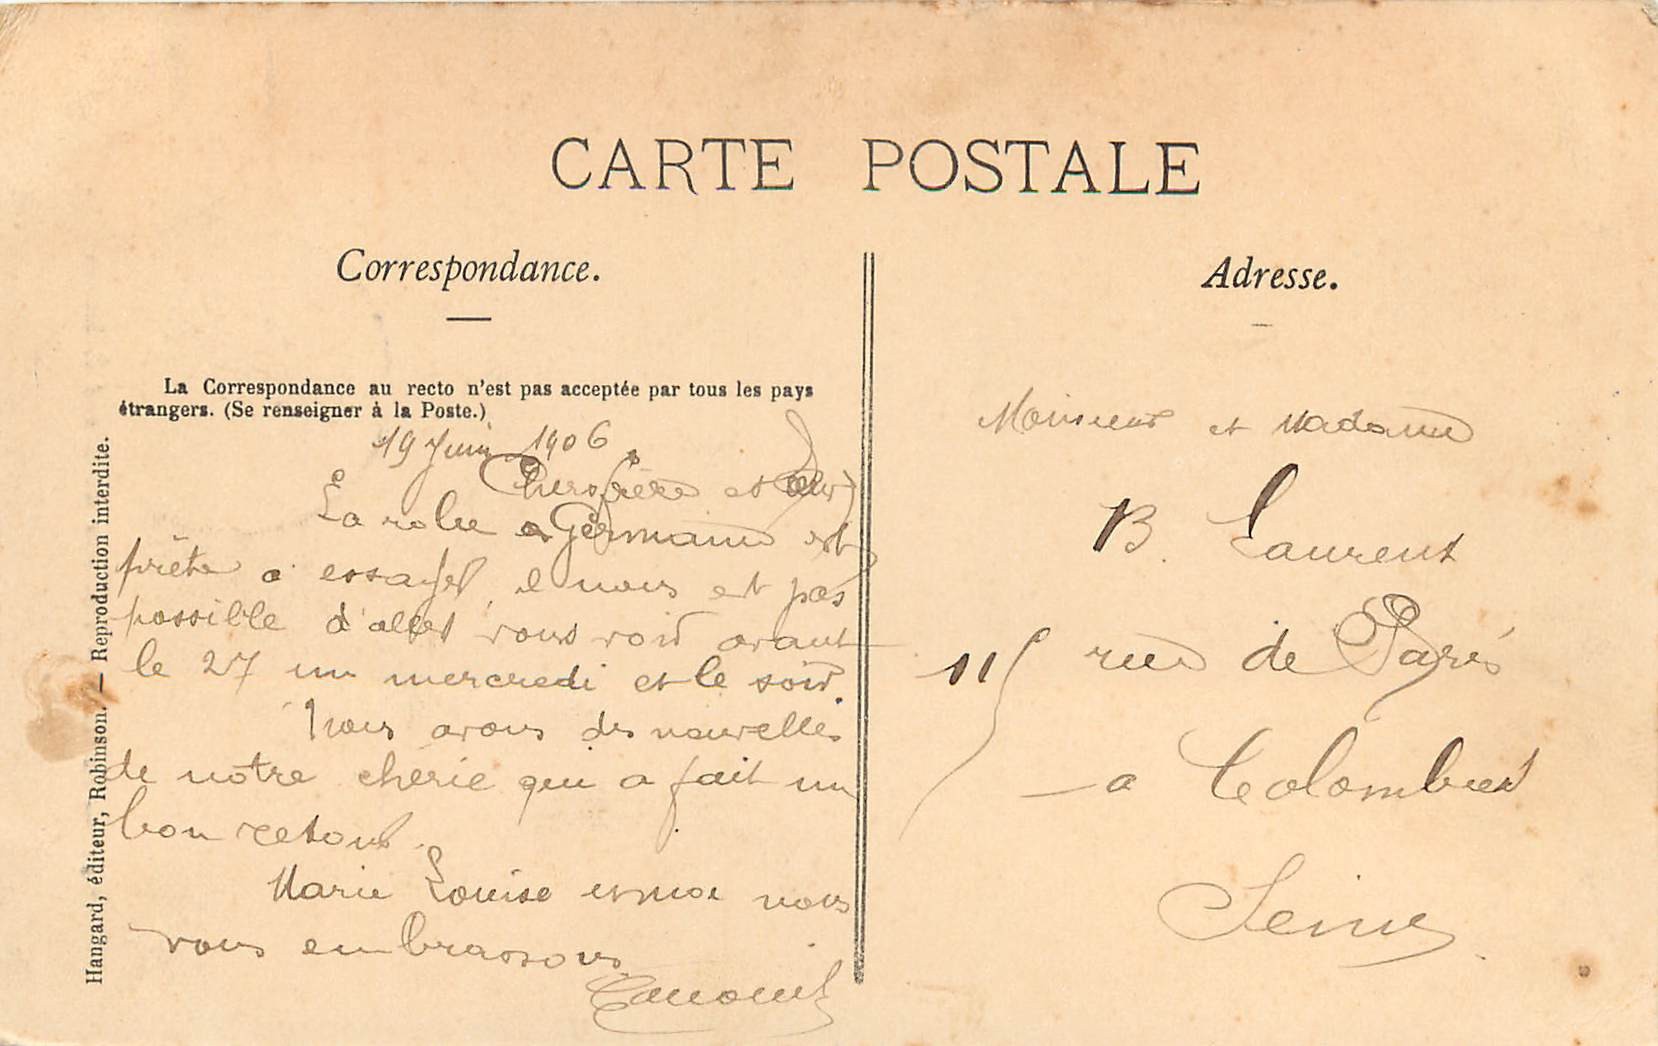 CARTE POSTALE
Correspondance.
La Correspondance au recto n'est pas acceptée par tous les pays
étrangers. (Se renseigner à la Poste.)
19 Juin 1906
Chers frère et
La robe a Germaine est
prête a essayer, il nous est pas
possible d'aller vous voir avant
le 27 un mercredi et le soir.
Nous avons des nouvelles
de notre chérie qui a fait un
bon retour.
Marie Louise et moi nous
vous embrassons
Hangard, éditeur, Robinson. — Reproduction interdite.
Adresse.
Monsieur et Madame
B. Laurent
115 rue de Paris
a Colombes
Seine